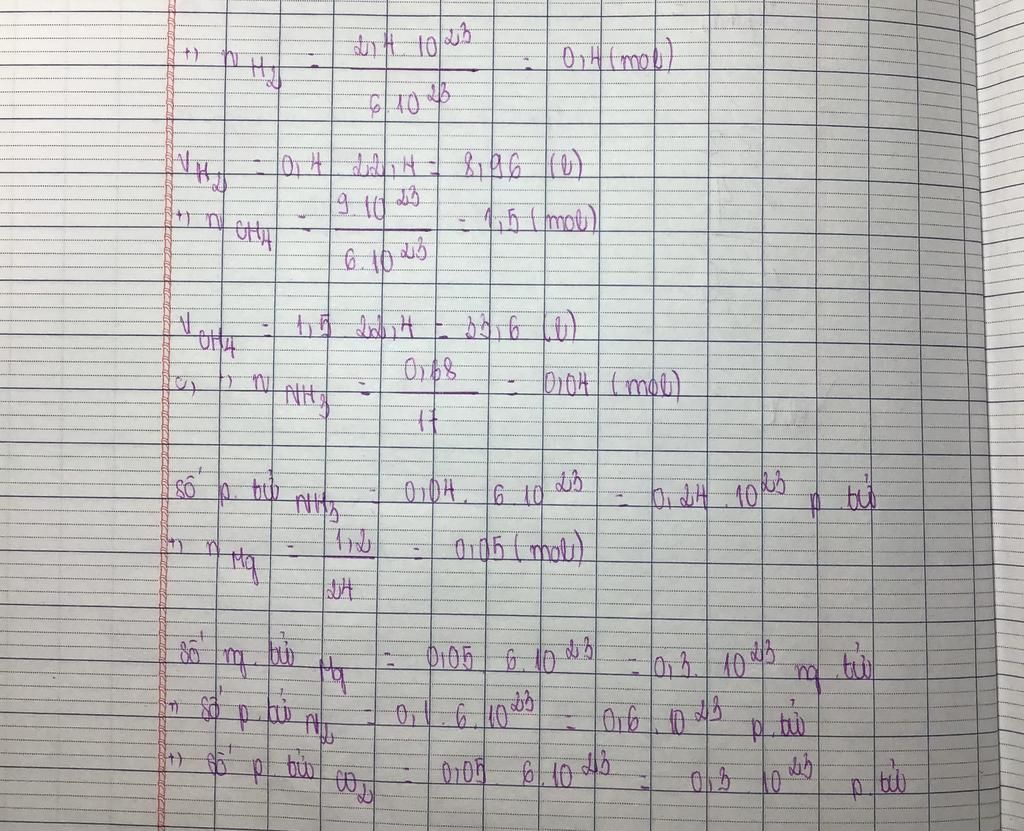 +) n H2 = 2,4 10^23 / 6.10^23 = 0,4 (mol)
V H2 = 0,4 22,4 = 8,96 (l)
+) n CH4 = 9.10^23 / 6.10^23 = 1,5 (mol)
V CH4 = 1,5 22,4 = 33,6 (l)
c, +) n NH3 = 0,68 / 17 = 0,04 (mol)
số p. tử NH3 = 0,04. 6 10^23 = 0,24 . 10^23 p tử
+) n Mg = 1,2 / 24 = 0,05 (mol)
số ng. tử Mg = 0,05 6.10^23 = 0,3. 10^23 ng. tử
+) số p. tử N2 = 0,1 . 6.10^23 = 0,6 . 10^23 p. tử
+) số p tử CO2 = 0,05 6.10^23 = 0,3 10^23 p. tử